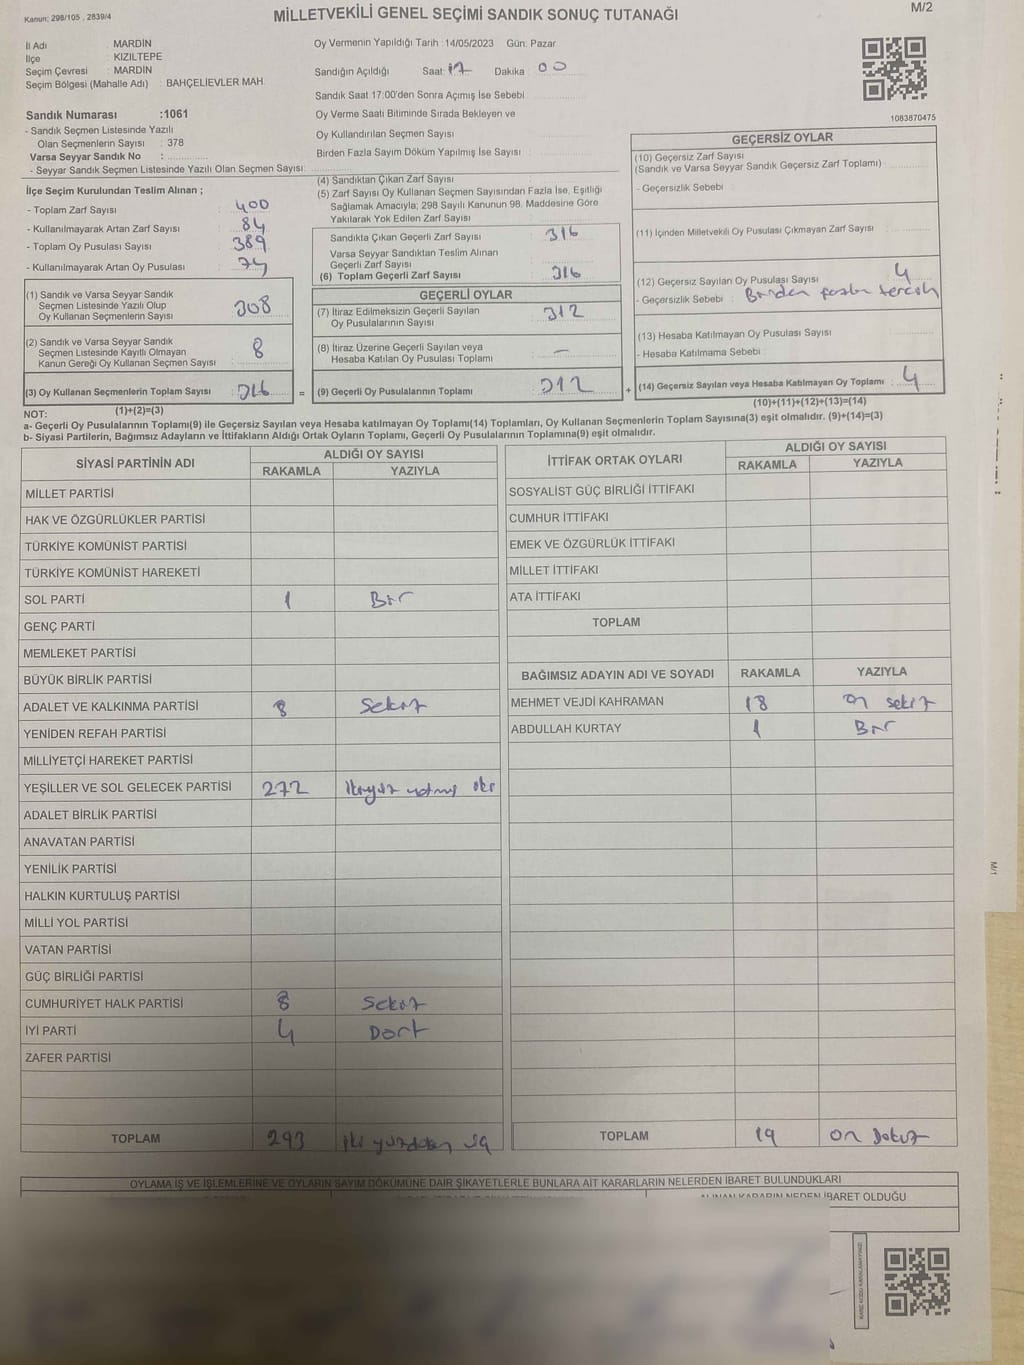 Kanun: 298/105 , 2839/4
MİLLETVEKİLİ GENEL SEÇİMİ SANDIK SONUÇ TUTANAĞI
M/2
İl Adı : MARDİN
İlçe : KIZILTEPE
Seçim Çevresi : MARDİN
Seçim Bölgesi (Mahalle Adı) : BAHÇELİEVLER MAH.
Oy Vermenin Yapıldığı Tarih : 14/05/2023 Gün: Pazar
Sandığın Açıldığı Saat: 17 Dakika 00
Sandık Saat 17:00'den Sonra Açımış İse Sebebi
Oy Verme Saati Bitiminde Sırada Bekleyen ve
Oy Kullandırılan Seçmen Sayısı
Birden Fazla Sayım Döküm Yapılmış İse Sayısı
1083870475
Sandık Numarası :1061
- Sandık Seçmen Listesinde Yazılı
Olan Seçmenlerin Sayısı : 378
Varsa Seyyar Sandık No :
- Seyyar Sandık Seçmen Listesinde Yazılı Olan Seçmen Sayısı:
İlçe Seçim Kurulundan Teslim Alınan ;
- Toplam Zarf Sayısı : 400
- Kullanılmayarak Artan Zarf Sayısı : 84
- Toplam Oy Pusulası Sayısı : 389
- Kullanılmayarak Artan Oy Pusulası : 74
(1) Sandık ve Varsa Seyyar Sandık
Seçmen Listesinde Yazılı Olup
Oy Kullanan Seçmenlerin Sayısı : 308
(2) Sandık ve Varsa Seyyar Sandık
Seçmen Listesinde Kayıtlı Olmayan
Kanun Gereği Oy Kullanan Seçmen Sayısı : 8
(3) Oy Kullanan Seçmenlerin Toplam Sayısı : 316 =
(1)+(2)=(3)
(4) Sandıktan Çıkan Zarf Sayısı
(5) Zarf Sayısı Oy Kullanan Seçmen Sayısından Fazla İse, Eşitliği
Sağlamak Amacıyla; 298 Sayılı Kanunun 98. Maddesine Göre
Yakılarak Yok Edilen Zarf Sayısı
Sandıkta Çıkan Geçerli Zarf Sayısı : 316
Varsa Seyyar Sandıktan Teslim Alınan
Geçerli Zarf Sayısı
(6) Toplam Geçerli Zarf Sayısı : 316
GEÇERLİ OYLAR
(7) İtiraz Edilmeksizin Geçerli Sayılan
Oy Pusulalarının Sayısı : 312
(8) İtiraz Üzerine Geçerli Sayılan veya
Hesaba Katılan Oy Pusulası Toplamı : —
(9) Geçerli Oy Pusulalarının Toplamı : 312 +
GEÇERSİZ OYLAR
(10) Geçersiz Zarf Sayısı
(Sandık ve Varsa Seyyar Sandık Geçersiz Zarf Toplamı) :
- Geçersizlik Sebebi :
(11) İçinden Milletvekili Oy Pusulası Çıkmayan Zarf Sayısı :
(12) Geçersiz Sayılan Oy Pusulası Sayısı : 4
- Geçersizlik Sebebi : Birden fazla tercih
(13) Hesaba Katılmayan Oy Pusulası Sayısı
- Hesaba Katılmama Sebebi :
(14) Geçersiz Sayılan veya Hesaba Katılmayan Oy Toplamı : 4
(10)+(11)+(12)+(13)=(14)
NOT:
a- Geçerli Oy Pusulalarının Toplamı(9) ile Geçersiz Sayılan veya Hesaba katılmayan Oy Toplamı(14) Toplamları, Oy Kullanan Seçmenlerin Toplam Sayısına(3) eşit olmalıdır. (9)+(14)=(3)
b- Siyasi Partilerin, Bağımsız Adayların ve İttifakların Aldığı Ortak Oyların Toplamı, Geçerli Oy Pusulalarının Toplamına(9) eşit olmalıdır.
SİYASİ PARTİNİN ADI ALDIĞI OY SAYISI
RAKAMLA YAZIYLA
MİLLET PARTİSİ
HAK VE ÖZGÜRLÜKLER PARTİSİ
TÜRKİYE KOMÜNİST PARTİSİ
TÜRKİYE KOMÜNİST HAREKETİ
SOL PARTİ 1 Bir
GENÇ PARTİ
MEMLEKET PARTİSİ
BÜYÜK BİRLİK PARTİSİ
ADALET VE KALKINMA PARTİSİ 8 Sekiz
YENİDEN REFAH PARTİSİ
MİLLİYETÇİ HAREKET PARTİSİ
YEŞİLLER VE SOL GELECEK PARTİSİ 272 ikiyüz yetmiş iki
ADALET BİRLİK PARTİSİ
ANAVATAN PARTİSİ
YENİLİK PARTİSİ
HALKIN KURTULUŞ PARTİSİ
MİLLİ YOL PARTİSİ
VATAN PARTİSİ
GÜÇ BİRLİĞİ PARTİSİ
CUMHURİYET HALK PARTİSİ 8 Sekiz
İYİ PARTİ 4 Dört
ZAFER PARTİSİ
TOPLAM 293 iki yüzdoksan üç
İTTİFAK ORTAK OYLARI ALDIĞI OY SAYISI
RAKAMLA YAZIYLA
SOSYALİST GÜÇ BİRLİĞİ İTTİFAKI
CUMHUR İTTİFAKI
EMEK VE ÖZGÜRLÜK İTTİFAKI
MİLLET İTTİFAKI
ATA İTTİFAKI
TOPLAM
BAĞIMSIZ ADAYIN ADI VE SOYADI RAKAMLA YAZIYLA
MEHMET VEJDİ KAHRAMAN 18 on sekiz
ABDULLAH KURTAY 1 Bir
TOPLAM 19 on dokuz
OYLAMA İŞ VE İŞLEMLERİNE VE OYLARIN SAYIM DÖKÜMÜNE DAİR ŞİKAYETLERLE BUNLARA AİT KARARLARIN NELERDEN İBARET BULUNDUKLARI
ALINAN KARARIN NEDEN İBARET OLDUĞU
M/1